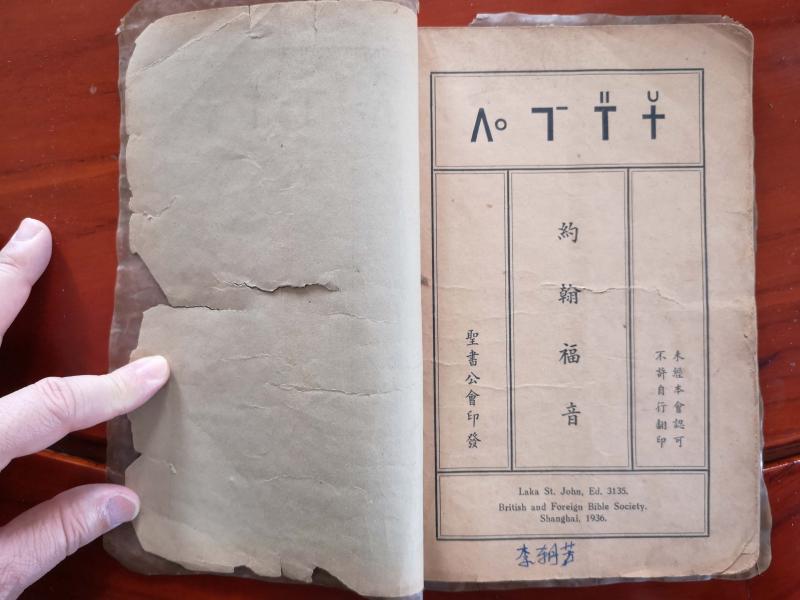 未經本會認可
不許自行翻印
約翰福音
聖書公會印發
Laka St. John, Ed. 3135.
British and Foreign Bible Society.
Shanghai, 1936.
李朝芳